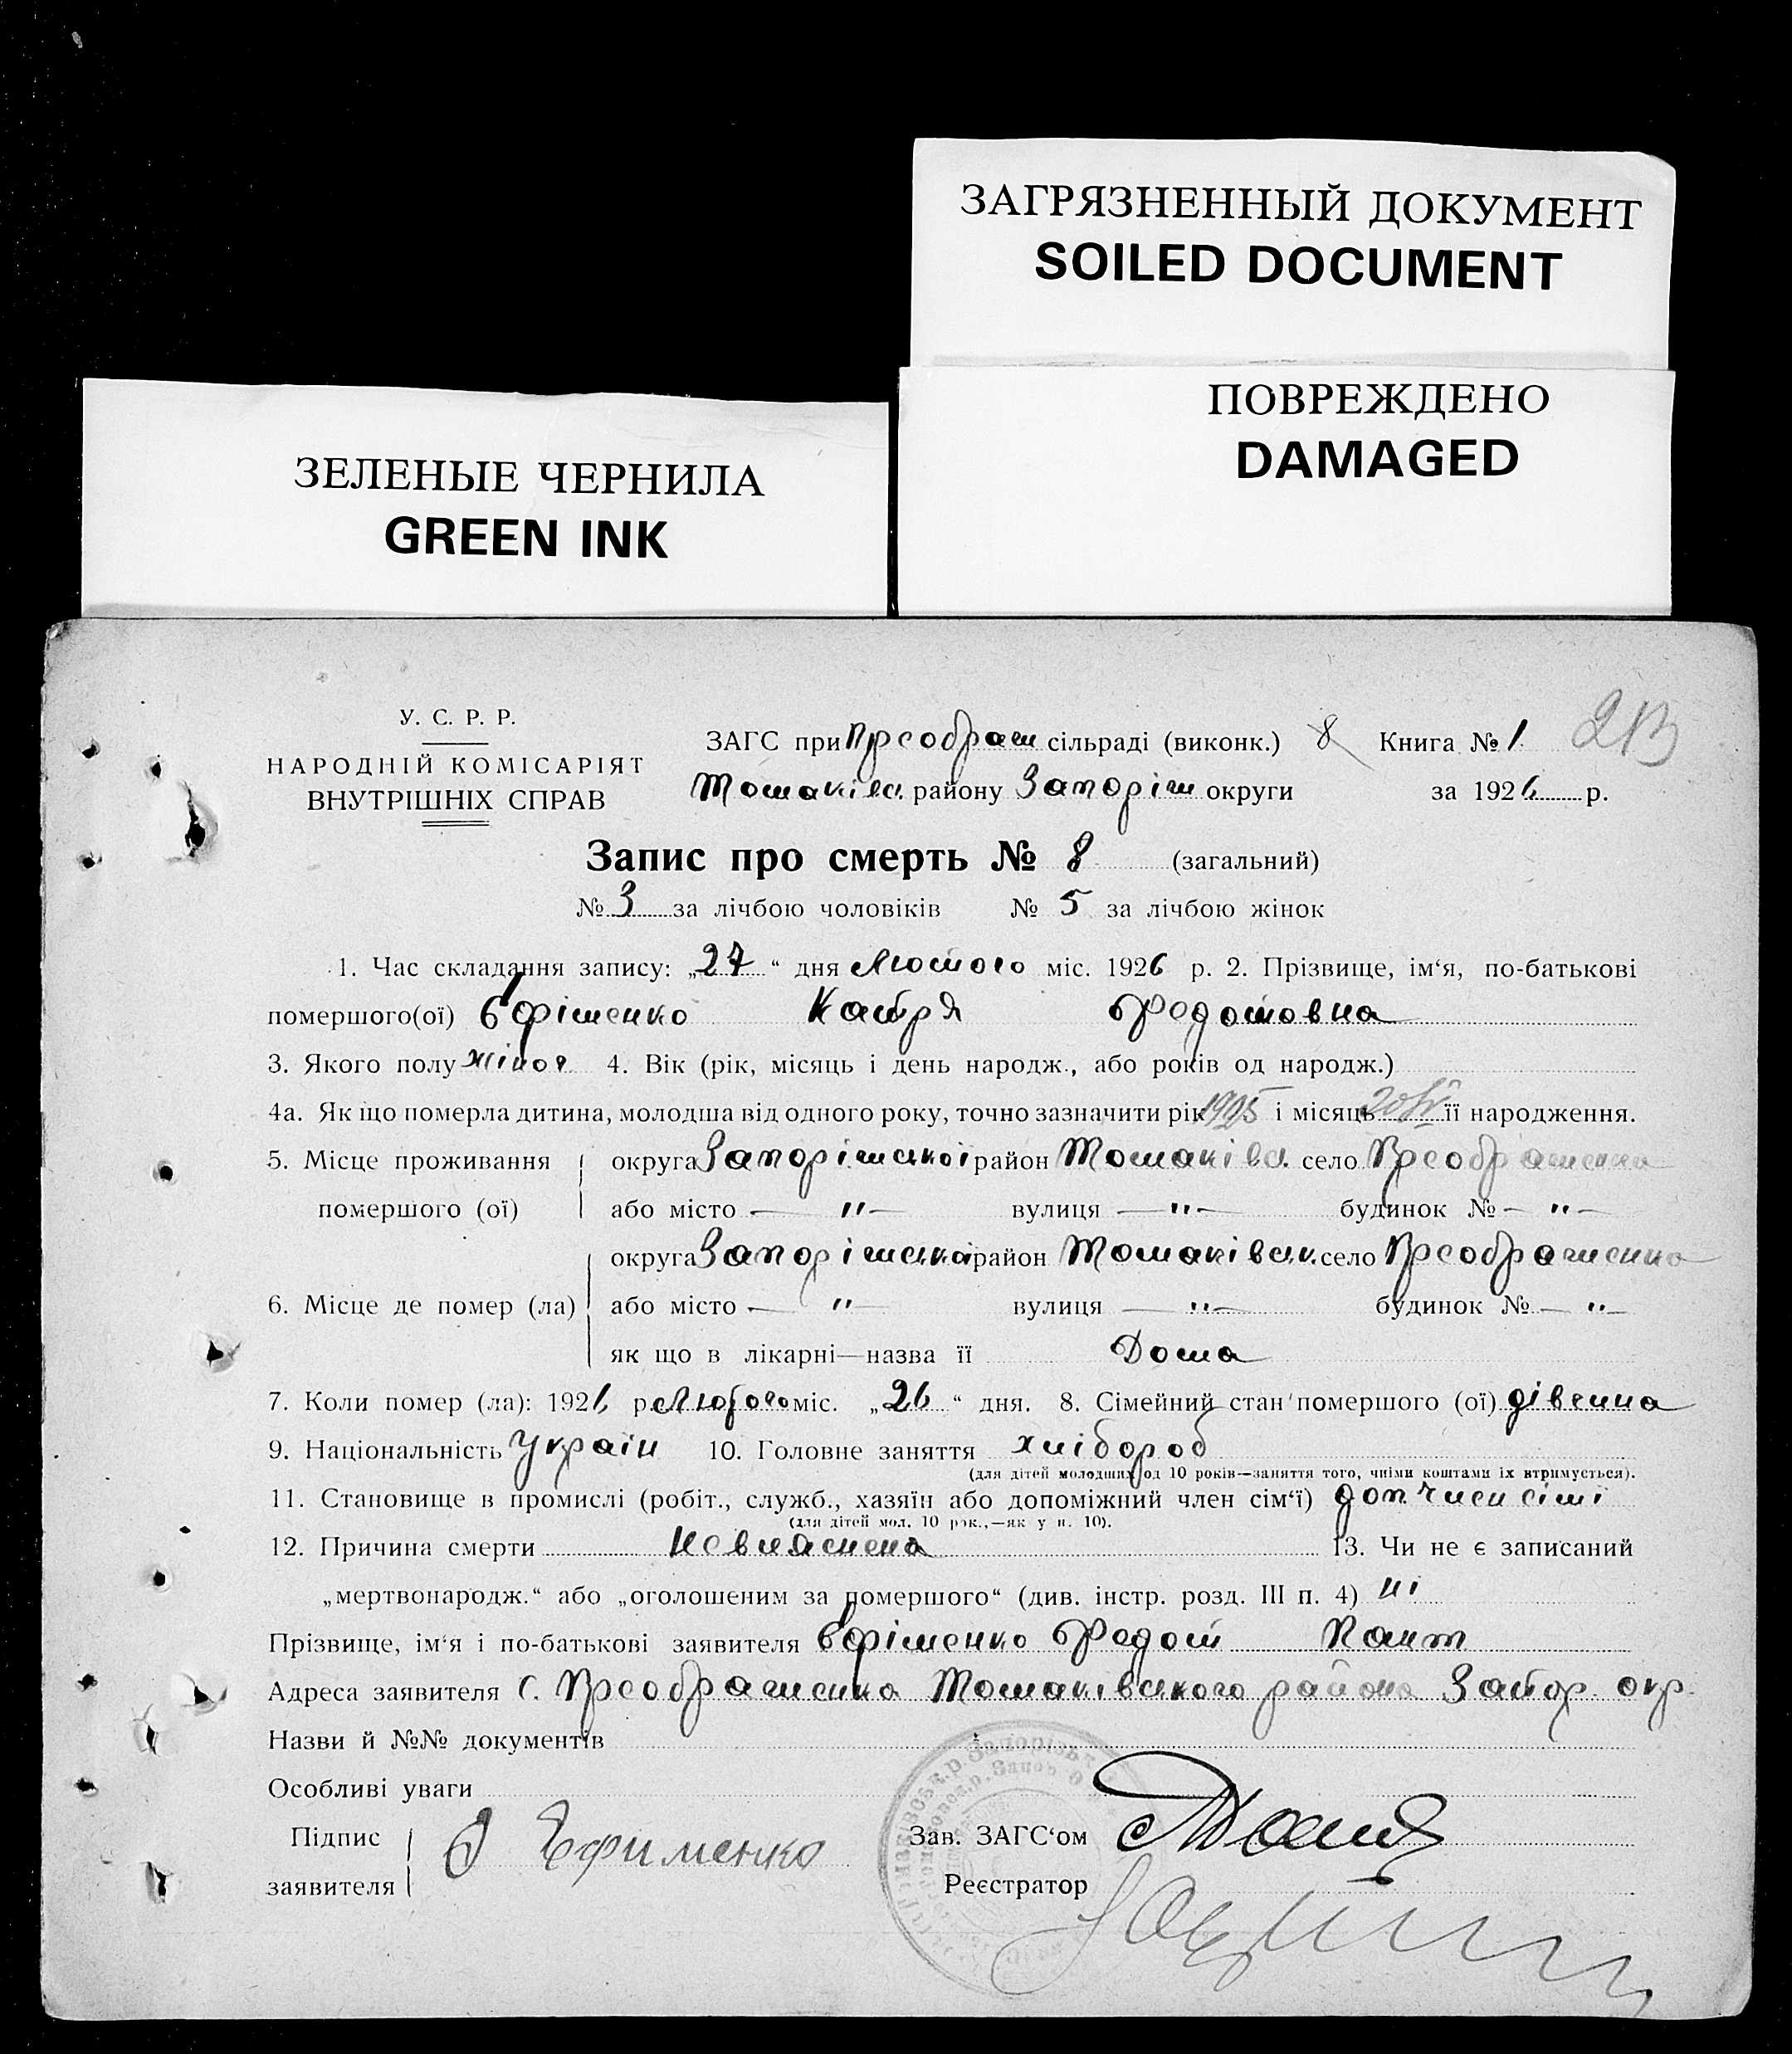 ЗАГРЯЗНЕННЫЙ ДОКУМЕНТ
SOILED DOCUMENT
ПОВРЕЖДЕНО
DAMAGED
ЗЕЛЕНЫЕ ЧЕРНИЛА
GREEN INK
У. С. Р. Р.
НАРОДНІЙ КОМІСАРІЯТ
ВНУТРІШНІХ СПРАВ
ЗАГС при Преображ сільраді (виконк.) 8 Книга № 1
Томаківс. району Запоріж округи за 1926 р.
Запис про смерть № 8 (загальний)
№ 3 за лічбою чоловіків № 5 за лічбою жінок
1. Час складання запису: „27“ дня Лютого міс. 1926 р. 2. Прізвище, ім‘я, по-батькові
помершого(ої) Єфіменко Катря Федотовна
3. Якого полу жіноч 4. Вік (рік, місяць і день народж., або років од народж.)
4а. Як що померла дитина, молодша від одного року, точно зазначити рік 1925 і місяць її народження.
5. Місце проживання округа Запоріжської район Томаківс. село Преображенка
помершого (ої) або місто — " — вулиця — " — будинок № — " —
округа Запоріжська район Томаківськ. село Преображенка
6. Місце де помер (ла) або місто — " — вулиця — " — будинок № — " —
як що в лікарні—назва її Дома
7. Коли помер (ла): 1926 р. Лютого міс. „26“ дня. 8. Сімейний стан помершого (ої) дівчина
9. Національність Україн 10. Головне заняття хлібороб
(для дітей молодших од 10 років—заняття того, чиїми коштами їх втримується).
11. Становище в промислі (робіт., служб., хазяїн або допоміжний член сім‘ї) доп. член сімї
(для дітей мол. 10 рок.,—як у п. 10).
12. Причина смерти Невияснена 13. Чи не є записаний
„мертвонародж.“ або „оголошеним за помершого“ (див. інстр. розд. III п. 4) ні
Прізвище, ім‘я і по-батькові заявителя Єфіменко Федот
Адреса заявителя с. Преображенка Томаківського района Запор. окр.
Назви й №№ документів
Особливі уваги
Підпис Ефименко Зав. ЗАГС‘ом
заявителя Реєстратор